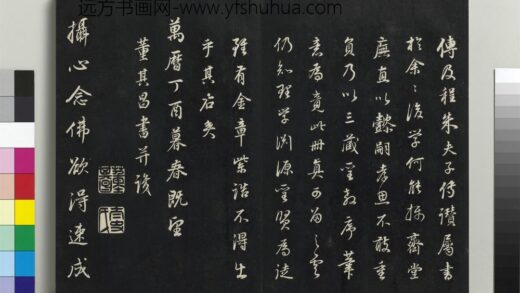 远方书画网-www.yfshuhua.com
傳及程朱夫子傳讚屬書
於余余後學何能揚齋堂
廡真以懿嗣孝思不敢重
負乃以三藏聖教序筆
意為竟此冊真可為之寶
仍知理學淵源聖賢為徒
雖有金章紫誥不得出
乎其右矣
萬曆丁酉暮春既望
董其昌書并後
攝心念佛欲得速成